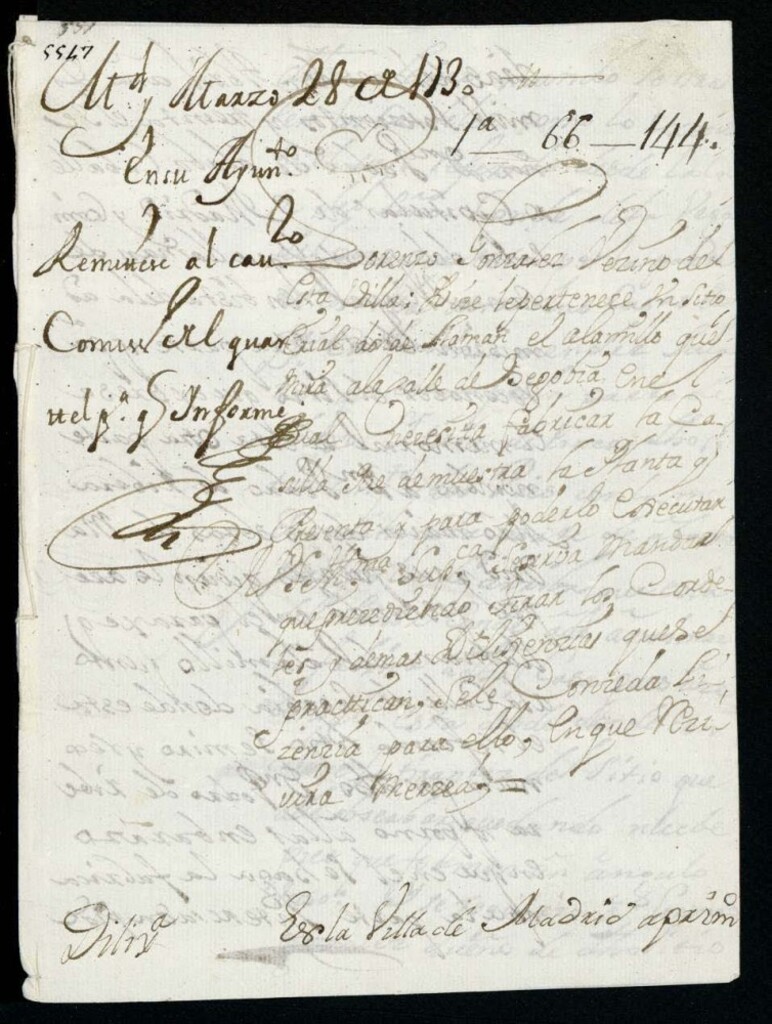 5547
Md y Marzo 28 de 1730
1ª — 66 — 144.
En su Ayunto.
Remitese al cauo.
Comisso. del quar
tel pª. q Informe
Lorenzo Gonzalez Vezino de
esta Villa: Dize le perteneze Un sitio
donde llaman el alamillo que
mira a la Calle de Segobia en el
qual nezesita fabricar la Ca-
silla que demuestra la Planta q
Presenta y para poderlo executar
A V. S. Ilma Supca. se sirva mandar
que prezediendo tirar los Corde-
les y demas Dilixenzias que se
practican, se le Conzeda Li-
zenzia para ello, en que Rezi-
vira merzed =
Dilixª
En la Villa de Madrid a prim